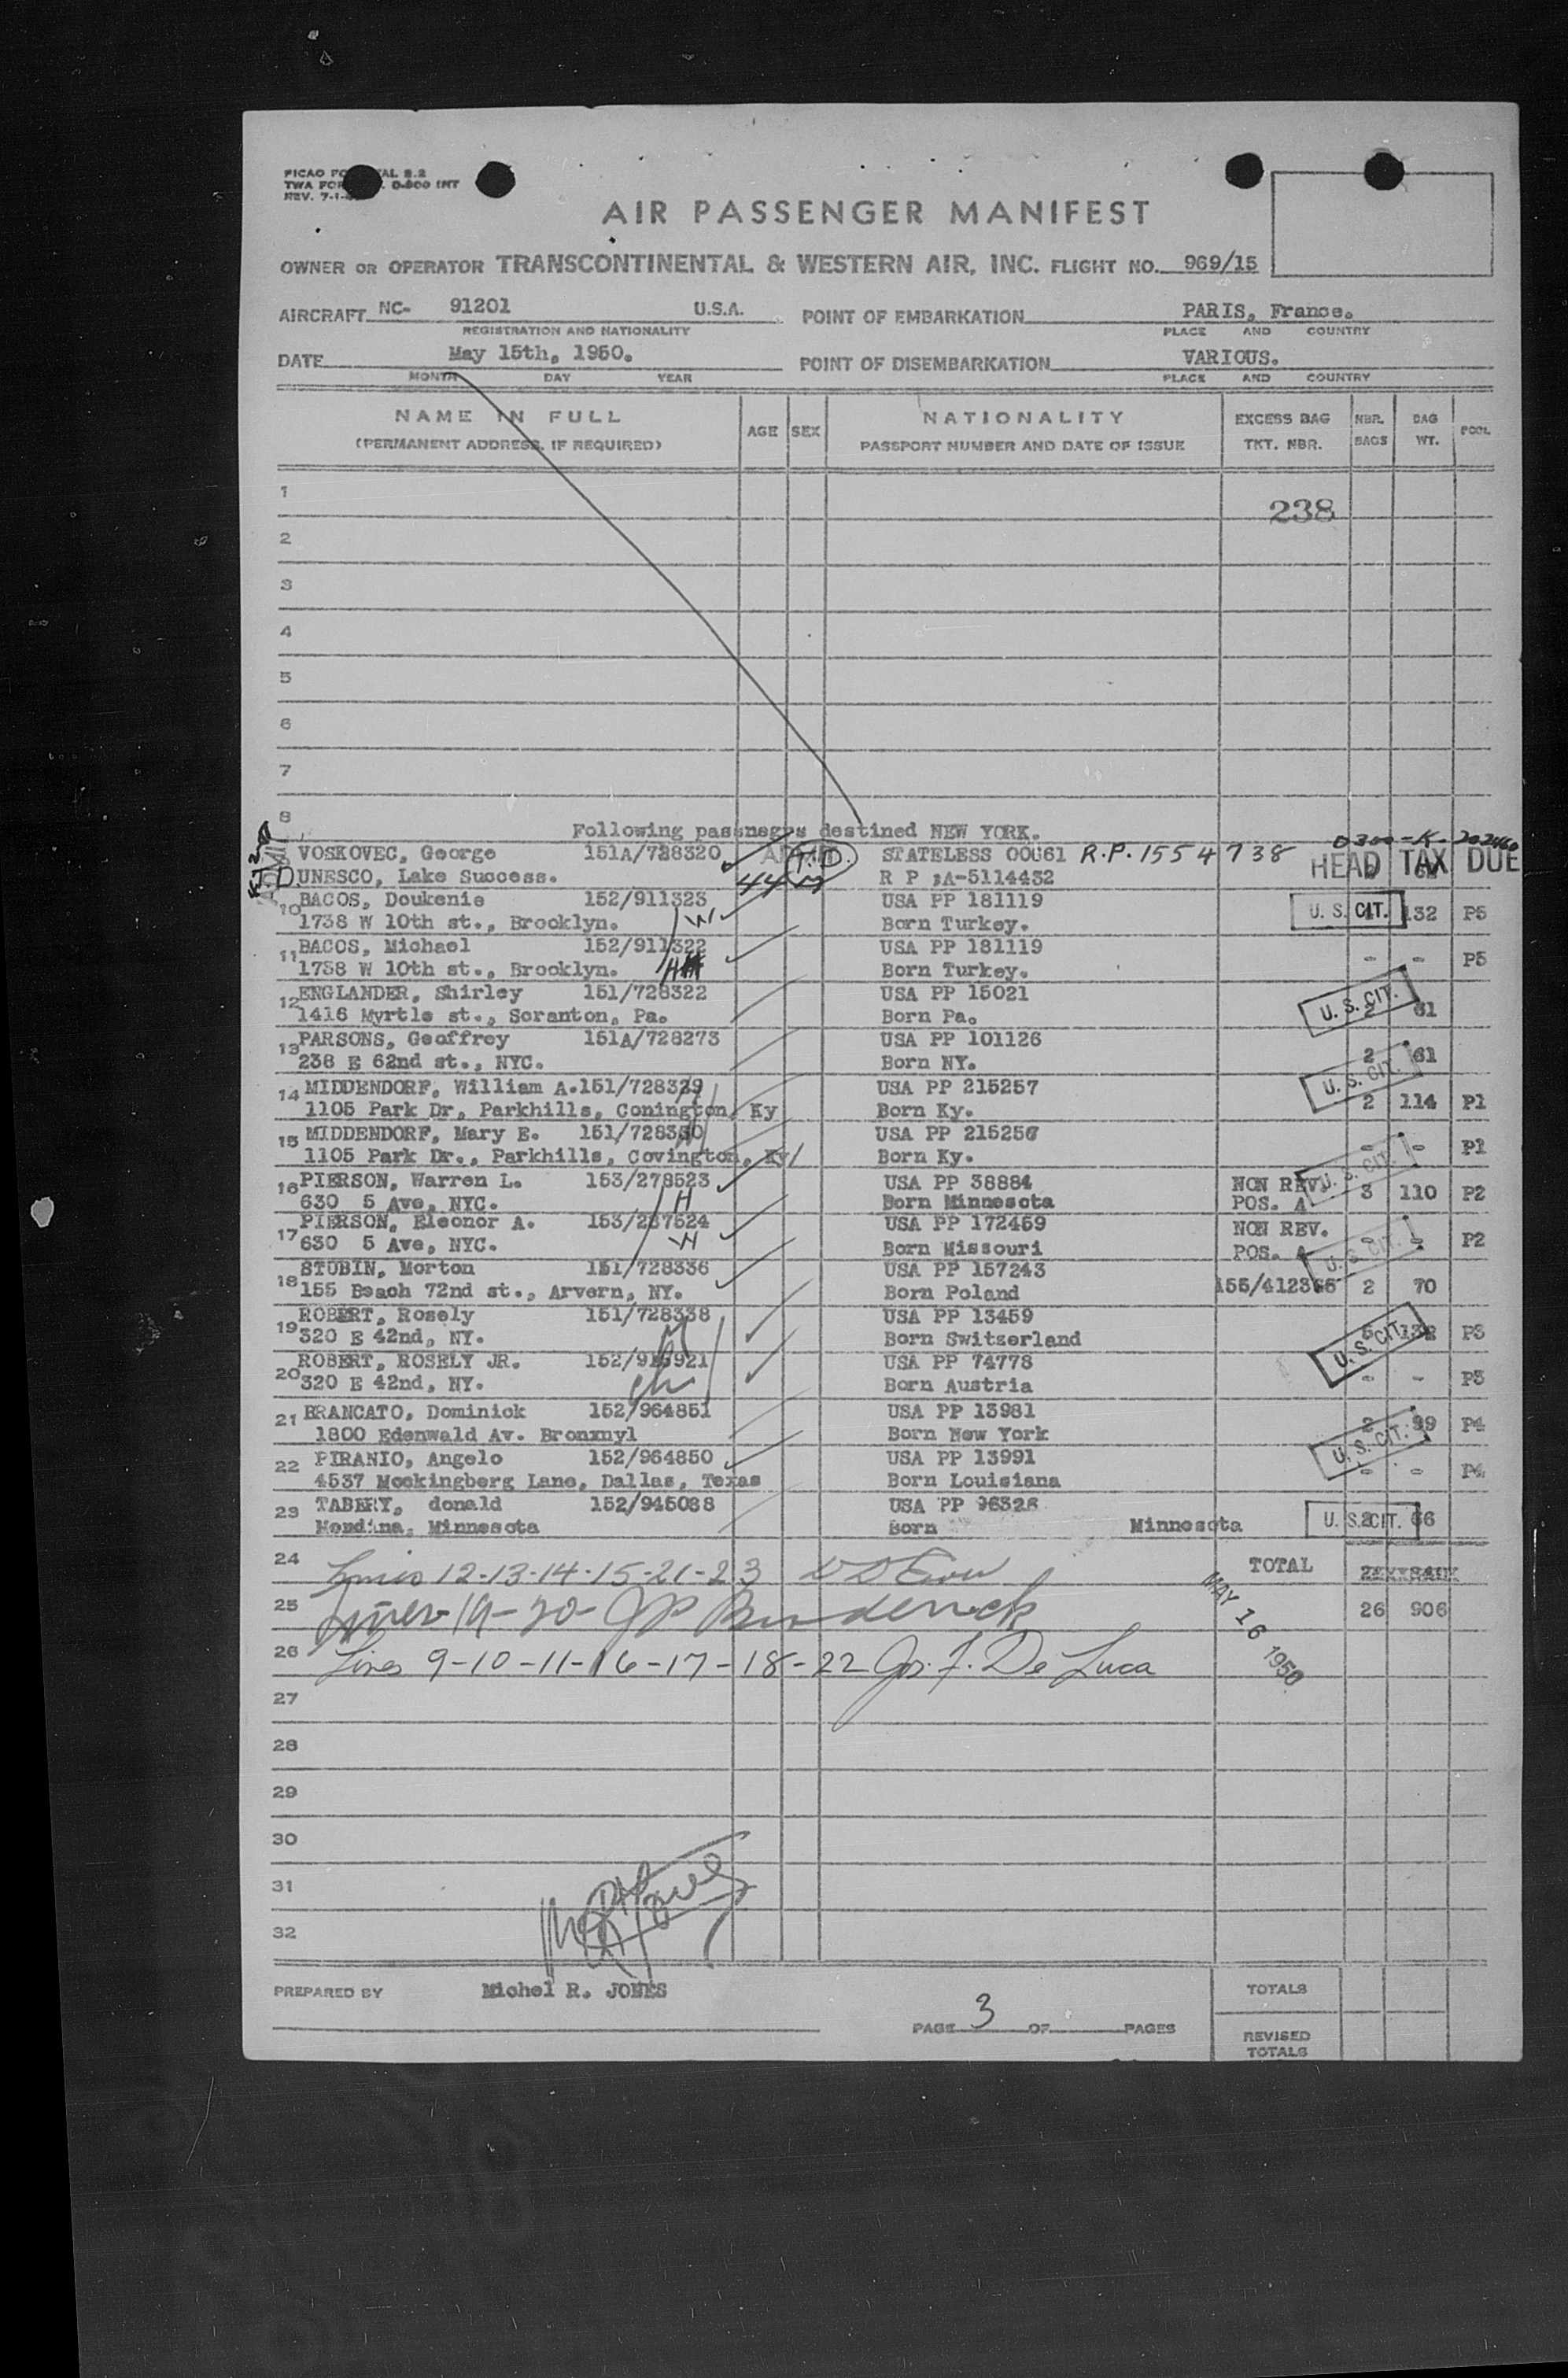 AIR PASSENGER MANIFEST
OWNER OR OPERATOR TRANSCONTINENTAL & WESTERN AIR, INC. FLIGHT NO. 969/15
AIRCRAFT NC- 91201 U.S.A. POINT OF EMBARKATION PARIS, France.
REGISTRATION AND NATIONALITY PLACE AND COUNTRY
DATE May 15th, 1950. POINT OF DISEMBARKATION VARIOUS.
MONTH DAY YEAR PLACE AND COUNTRY
NAME IN FULL AGE SEX NATIONALITY EXCESS BAG NBR. BAG POOL
(PERMANENT ADDRESS, IF REQUIRED) PASSPORT NUMBER AND DATE OF ISSUE TKT. NBR. BAGS WT.
1
238
2
3
4
5
6
7
8
Following passnegrs destined NEW YORK.
VOSKOVEC, George 151A/728320 STATELESS 00061 R.P. 1554738 HEAD TAX DUE
UNESCO, Lake Success. 44 M R P :A-5114432
10 BACOS, Doukenie 152/911323 W USA PP 181119 U. S. CIT. 132 P5
1738 W 10th st., Brooklyn. Born Turkey.
11 BACOS, Michael 152/911322 USA PP 181119 - - P5
1738 W 10th st., Brooklyn. Born Turkey.
12 ENGLANDER, Shirley 151/728322 USA PP 15021 U. S. CIT. 2 61
1416 Myrtle st., Scranton, Pa. Born Pa.
13 PARSONS, Geoffrey 151A/728273 USA PP 101126 2 61
238 E 62nd st., NYC. Born NY. U. S. CIT.
14 MIDDENDORF, William A. 151/728329 USA PP 215257 2 114 P1
1105 Park Dr, Parkhills, Conington, Ky Born Ky.
15 MIDDENDORF, Mary E. 151/728330 USA PP 215256 - - P1
1105 Park Dr., Parkhills, Covington, Ky/ Born Ky. U. S. CIT.
16 PIERSON, Warren L. 153/278523 USA PP 38884 NON REV. 3 110 P2
630 5 Ave, NYC. H Born Minnesota POS. A
17 PIERSON, Eleonor A. 153/287524 USA PP 172459 NON REV. - - P2
630 5 Ave, NYC. W Born Missouri POS. A U. S. CIT.
18 STUBIN, Morton 151/728336 USA PP 157243 155/412366 2 70
155 Beach 72nd st., Arvern, NY. Born Poland
19 ROBERT, Rosely 151/728338 USA PP 13459 5 132 P3
320 E 42nd, NY. Born Switzerland U. S. CIT.
20 ROBERT, ROSELY JR. USA PP 74778 - - P3
320 E 42nd, NY. ch Born Austria
21 BRANCATO, Dominick 152/964851 USA PP 13981 2 99 P4
1800 Edenwald Av. Bronxnyl Born New York U. S. CIT.
22 PIRANIO, Angelo 152/964850 USA PP 13991 - - P4
4537 Mockingberg Lane, Dallas, Texas Born Louisiana
23 TABERY, donald 152/945088 USA PP 96328 U. S. CIT. 2 66
Mendina, Minnesota Born Minnesota
24 Lines 12-13-14-15-21-23 TOTAL
25 Lines 19-20- JP Broderick 26 906
MAY 16 1950
26 Lines 9-10-11-16-17-18-22 Jos. F. De Luca
27
28
29
30
31
32
PREPARED BY Michel R. JONES TOTALS
PAGE 3 OF PAGES
REVISED
TOTALS